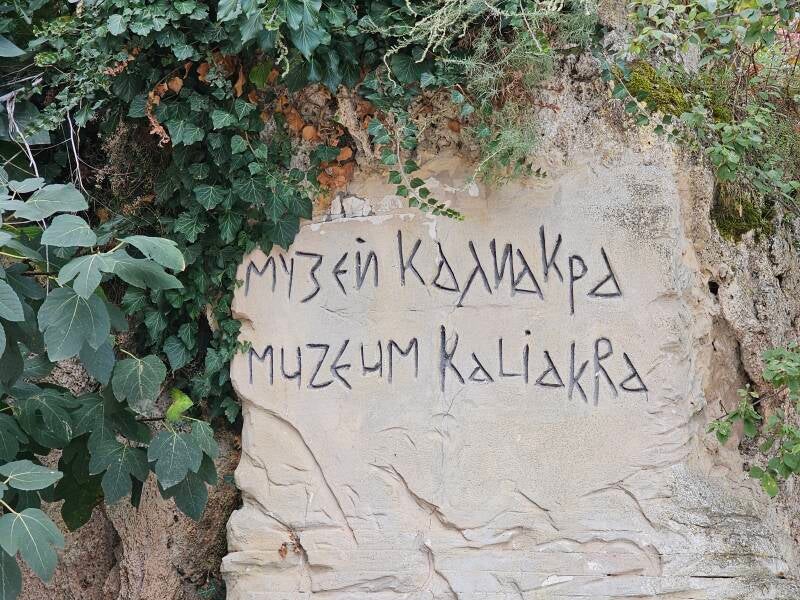 музей калиакра
muzeum kaliakra